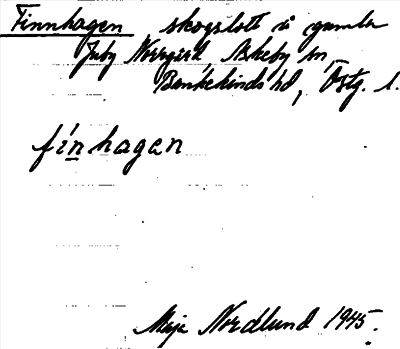 Finnhagen skogslott å gamla
Juby Norrgård, Askeby sn,
Bankekinds hd, Östg. l.
finhagen
Maja Nordlund 1945.